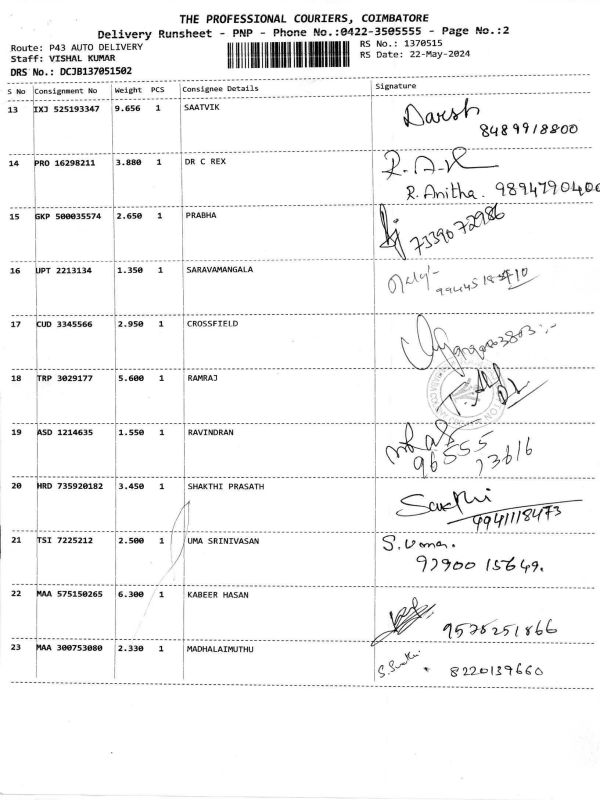 THE PROFESSIONAL COURIERS, COIMBATORE
Delivery Runsheet - PNP - Phone No.:0422-3505555 - Page No.:2
Route: P43 AUTO DELIVERY RS No.: 1370515
Staff: VISHAL KUMAR RS Date: 22-May-2024
DRS No.: DCJB137051502
S No Consignment No Weight PCS Consignee Details Signature
13 IXJ 525193347 9.656 1 SAATVIK Darsh
8489918800
14 PRO 16298211 3.880 1 DR C REX
R. Anitha. 9894790400
15 GKP 500035574 2.650 1 PRABHA
7339072986
16 UPT 2213134 1.350 1 SARAVAMANGALA
17 CUD 3345566 2.950 1 CROSSFIELD
18 TRP 3029177 5.600 1 RAMRAJ
19 ASD 1214635 1.550 1 RAVINDRAN
96555
73616
20 HRD 735920182 3.450 1 SHAKTHI PRASATH Sakthi
9941118473
21 TSI 7225212 2.500 1 UMA SRINIVASAN S. Uma.
97900 15649.
22 MAA 575150265 6.300 1 KABEER HASAN
9578251866
23 MAA 300753080 2.330 1 MADHALAIMUTHU
8220139660